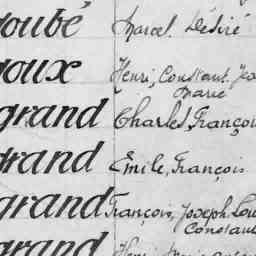 oubé Marcel Désiré
oux Henri, Constant. Jo
Marie
grand Charles, Françoi
grand Émile, François
grand François, Joseph Lou
Constant
grand Henri